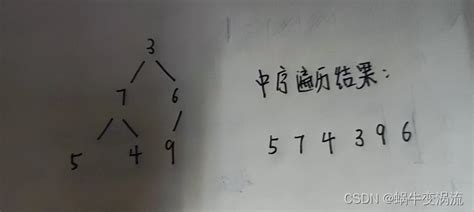 3
7 6
中序遍历结果:
5 4 9
5 7 4 3 9 6
CSDN @蜗牛变涡流